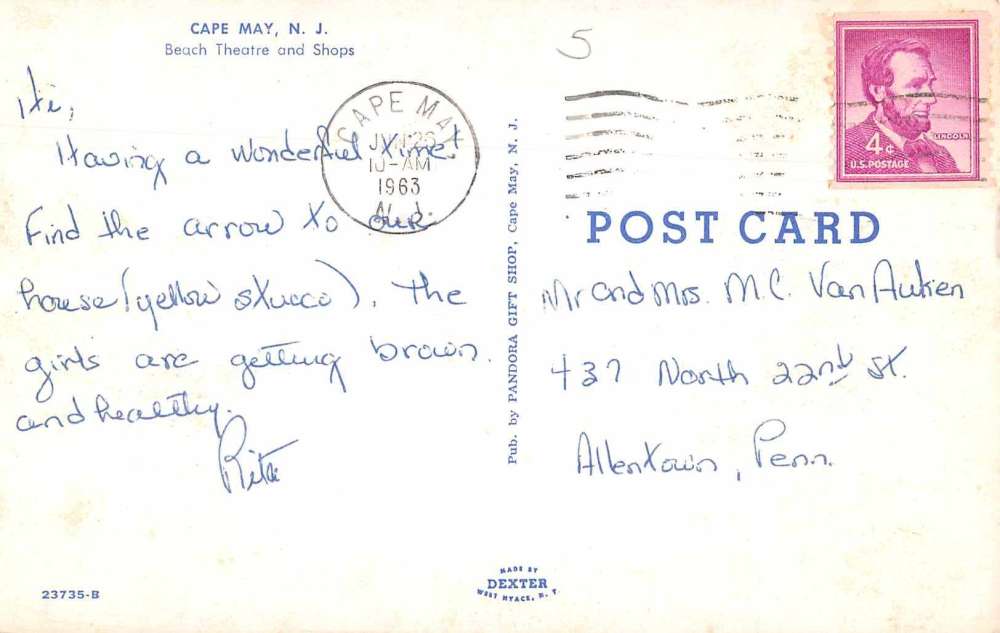 CAPE MAY, N. J.
Beach Theatre and Shops
Hi,
Having a wonderful time!
Find the arrow to our
house (yellow stucco). The
girls are getting brown
and healthy.
Rita
CAPE MAY
10-AM
1963
N.J.
5
LINCOLN
4¢
U.S. POSTAGE
POST CARD
Mr and Mrs. M.C. Van Auken
437 North 22nd St.
Allentown, Penn.
Pub. by PANDORA GIFT SHOP, Cape May, N. J.
23735-B
MADE BY
DEXTER
WEST NYACK, N. Y.